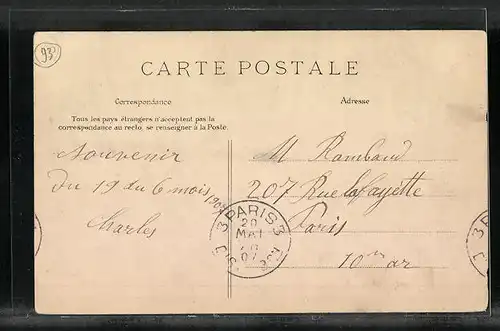 93
CARTE POSTALE
Correspondance
Adresse
Tous les pays étrangers n'acceptent pas la
correspondance au recto, se renseigner à la Poste.
Souvenir
du 19 du 6 mois 1907
Charles
M Rambaud
207 Rue Lafayette
Paris
10me ar
3 PARIS 3
20
MAI
07